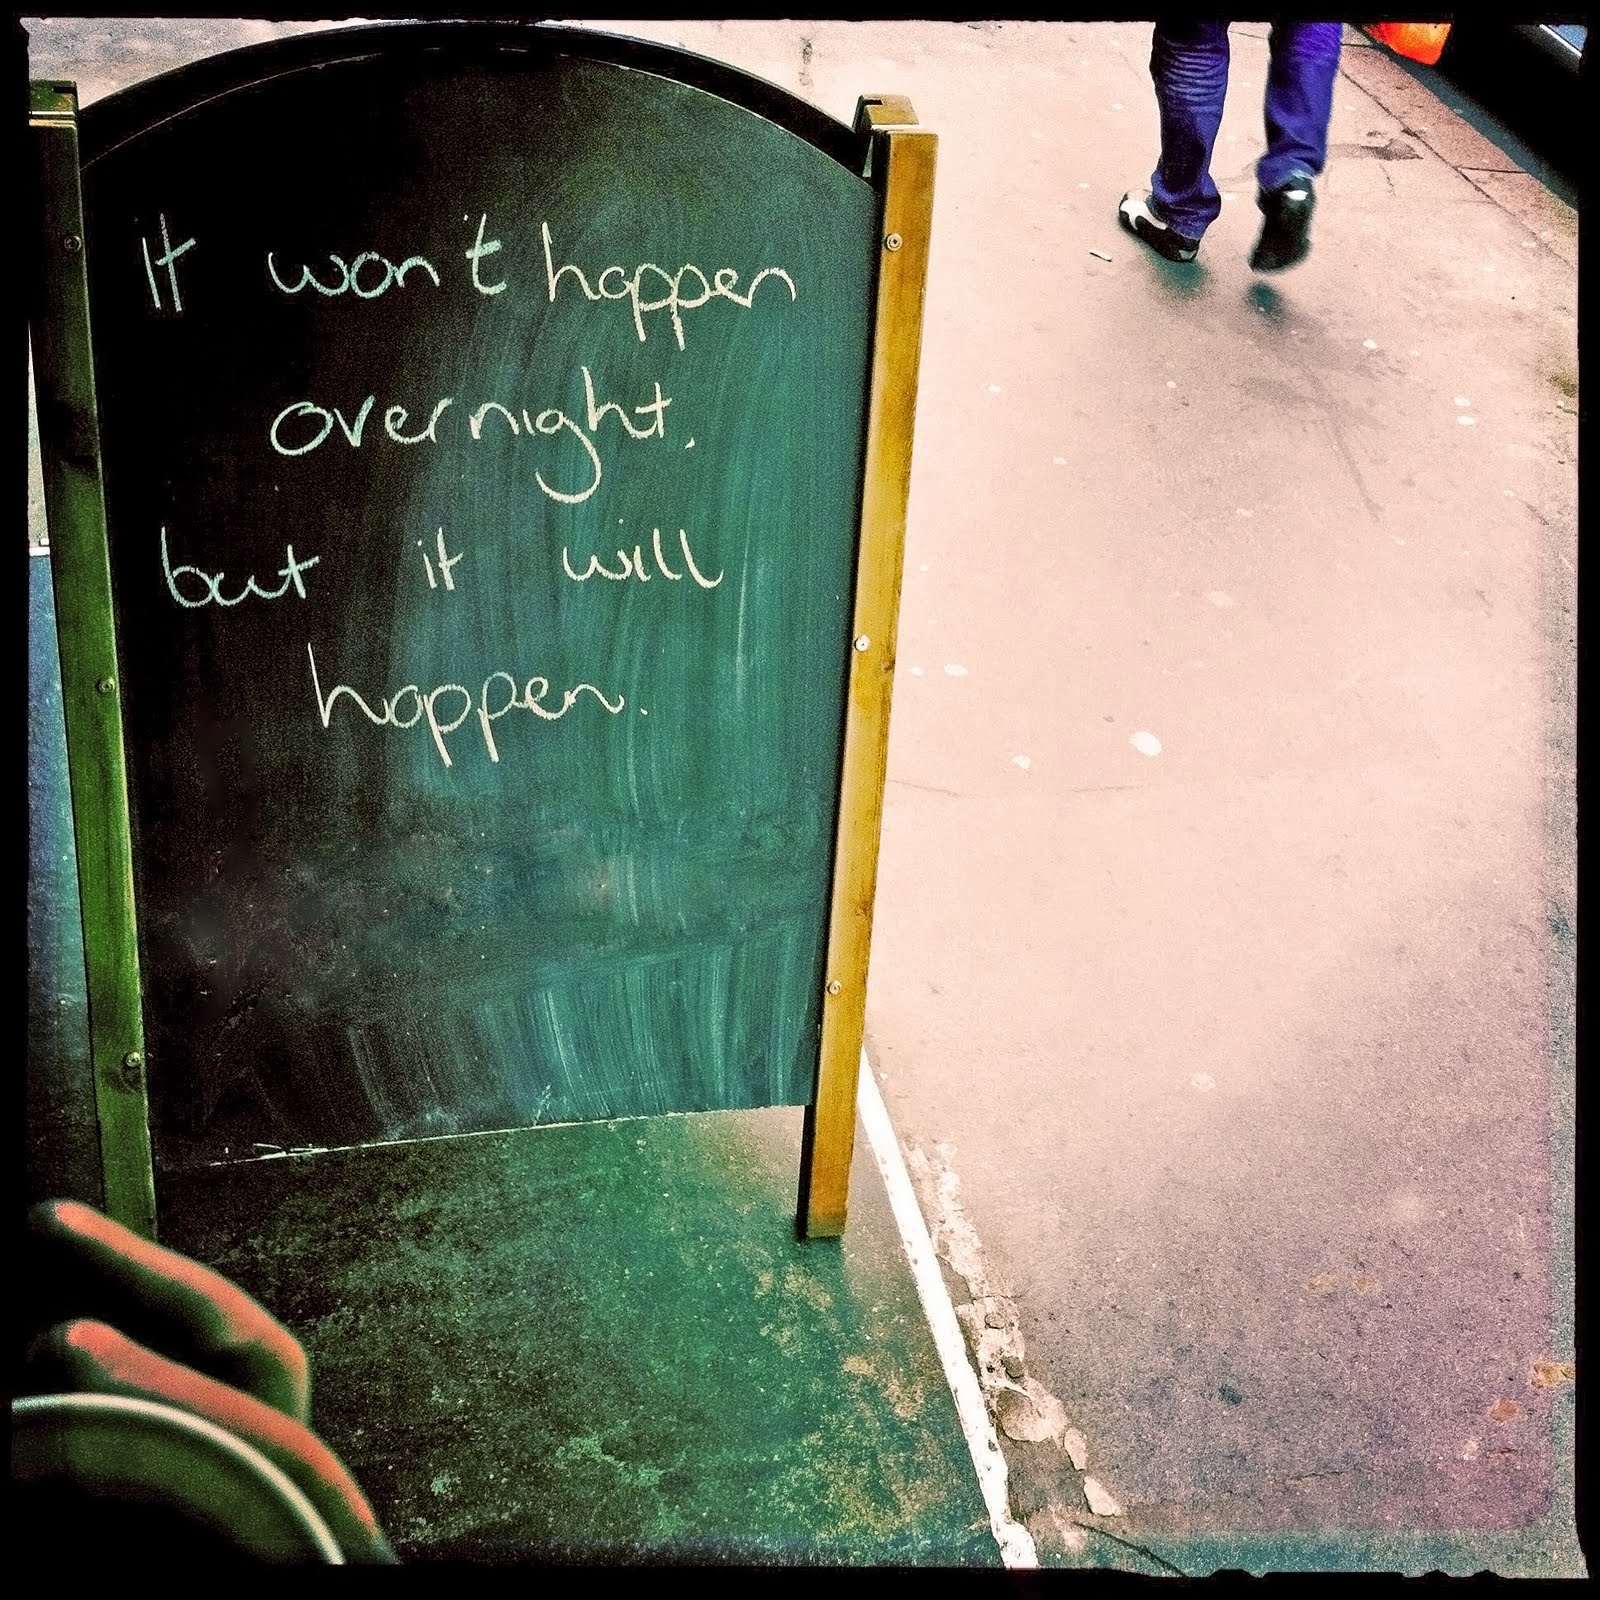 It won't happen
overnight.
but it will
happen.